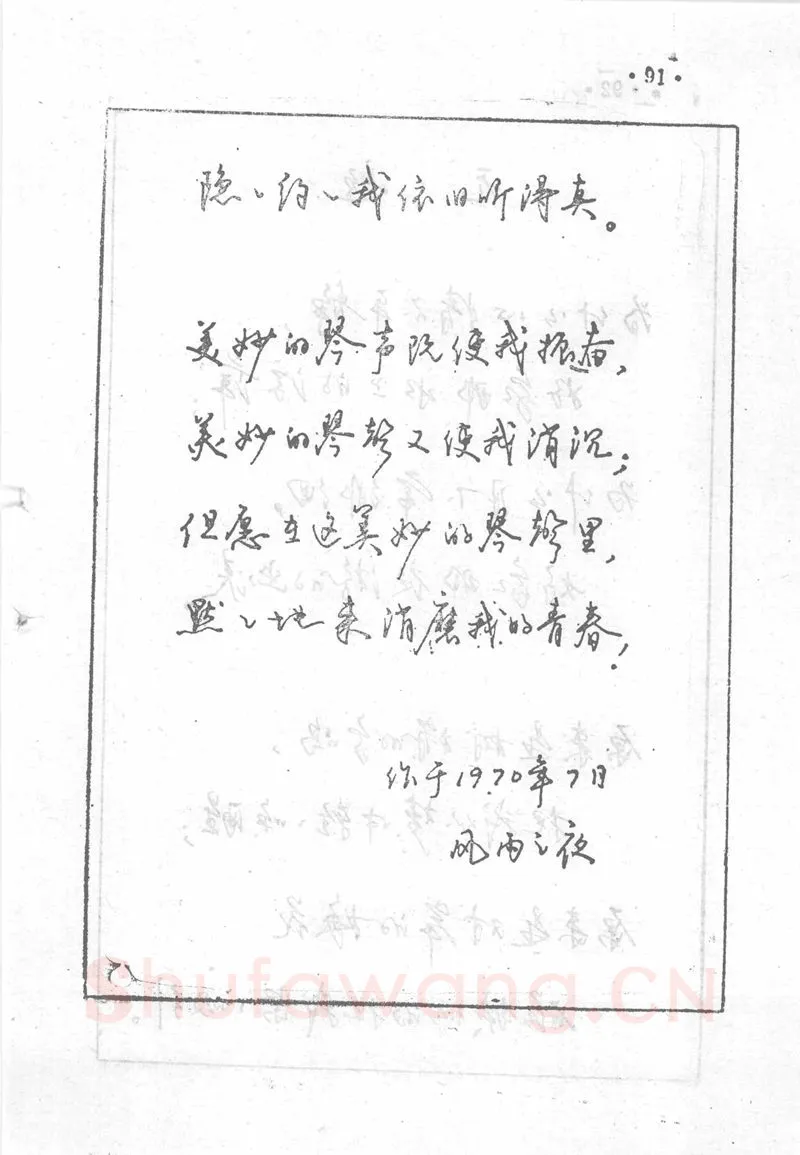 ·91·
隐丶约丶我依旧听得真。
美妙的琴声既使我振奋,
美妙的琴声又使我消沉;
但愿在这美妙的琴声里,
默丶地来消磨我的青春!
作于1970年7月
风雨之夜
Shufawang.CN